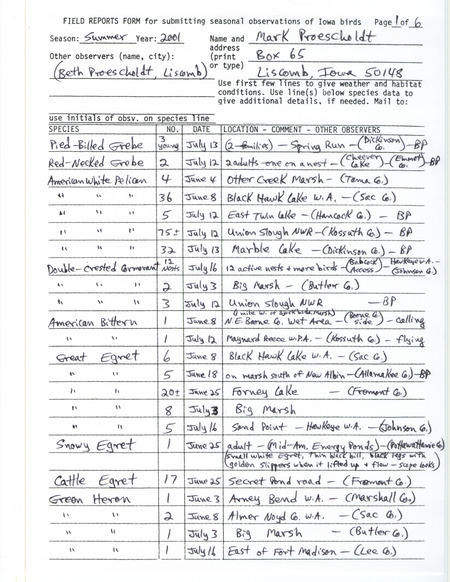 FIELD REPORTS FORM for submitting seasonal observations of Iowa birds Page 1 of 6
Season: Summer Year: 2001 Name and Mark Proescholdt
Other observers (name, city): address Box 65
(Beth Proescholdt, Liscomb) (print or type) Liscomb, Iowa 50148
Use first few lines to give weather and habitat
conditions. Use line(s) below species data to
give additional details, if needed. Mail to:
use initials of obsv. on species line
SPECIES NO. DATE LOCATION - COMMENT - OTHER OBSERVERS
Pied-Billed Grebe 3 young July 13 (2 families) - Spring Run - (Dickinson Co.) - BP
Red-Necked Grebe 2 July 12 2 adults-one on a nest - (Cheever Lake) - (Emmet Co.) - BP
American White Pelican 4 June 4 Otter Creek Marsh - (Tama Co.)
" " " 36 June 8 Black Hawk Lake W.A. - (Sac Co.)
" " " 5 July 12 East Twin Lake - (Hancock Co.) - BP
" " " 75± July 12 Union Slough NWR - (Kossuth Co.) - BP
" " " 32 July 13 Marble Lake - (Dickinson Co.) - BP
Double-Crested Cormorant 12 Nests July 16 12 active nests + more birds - (Babcock Access) - Hawkeye W.A. - (Johnson Co.)
" " " 2 July 3 Big Marsh - (Butler Co.)
" " " 3 July 12 Union Slough NWR - BP
American Bittern 1 June 8 N.E. Boone Co. Wet Area - (Boone Co. side) - calling
" " 1 July 12 Maynard Reece W.P.A. - (Kossuth Co.) - flying
Great Egret 6 June 8 Black Hawk Lake W.A. - (Sac Co.)
" " 5 June 18 on marsh south of New Albin - (Allamakee Co.) - BP
" " 20± June 25 Forney Lake - (Fremont Co.)
" " 8 July 3 Big Marsh
" " 5 July 16 Sand Point - Hawkeye W.A. - (Johnson Co.)
Snowy Egret 1 June 25 adult - (Mid-Am. Energy Ponds) - (Pottawattamie Co.)
(small white Egret, thin black bill, black legs with
golden slippers when it lifted up + flew - scope looks)
Cattle Egret 17 June 25 Secret Pond road - (Fremont Co.)
Green Heron 1 June 3 Arney Bend W.A. - (Marshall Co.)
" " 2 June 8 Almer Noyd Co. W.A. - (Sac Co.)
" " 1 July 3 Big Marsh - (Butler Co.)
" " 1 July 16 East of Fort Madison - (Lee Co.)